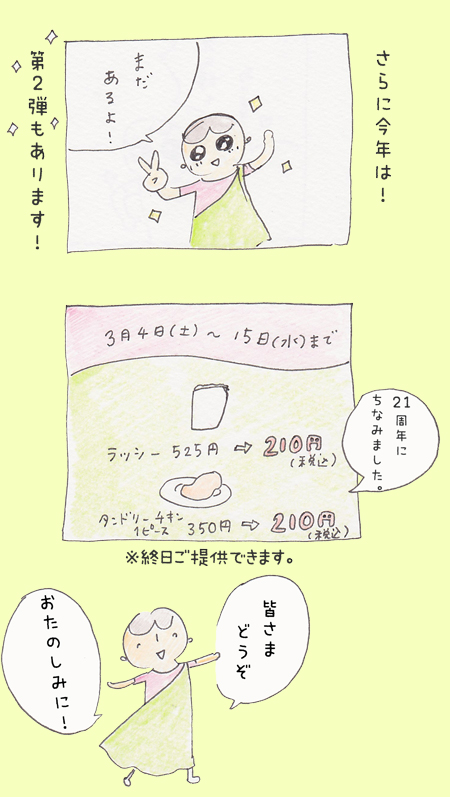 さらに今年は！
第2弾もあります！
まだ
あるよ！
3月4日(土)～15日(水)まで
ラッシー 525円 ⇨ 210円
(税込)
21周年に
ちなみました。
タンドリーチキン
1ピース 350円 ⇨ 210円
(税込)
※終日ご提供できます。
皆さま
どうぞ
おたのしみに！